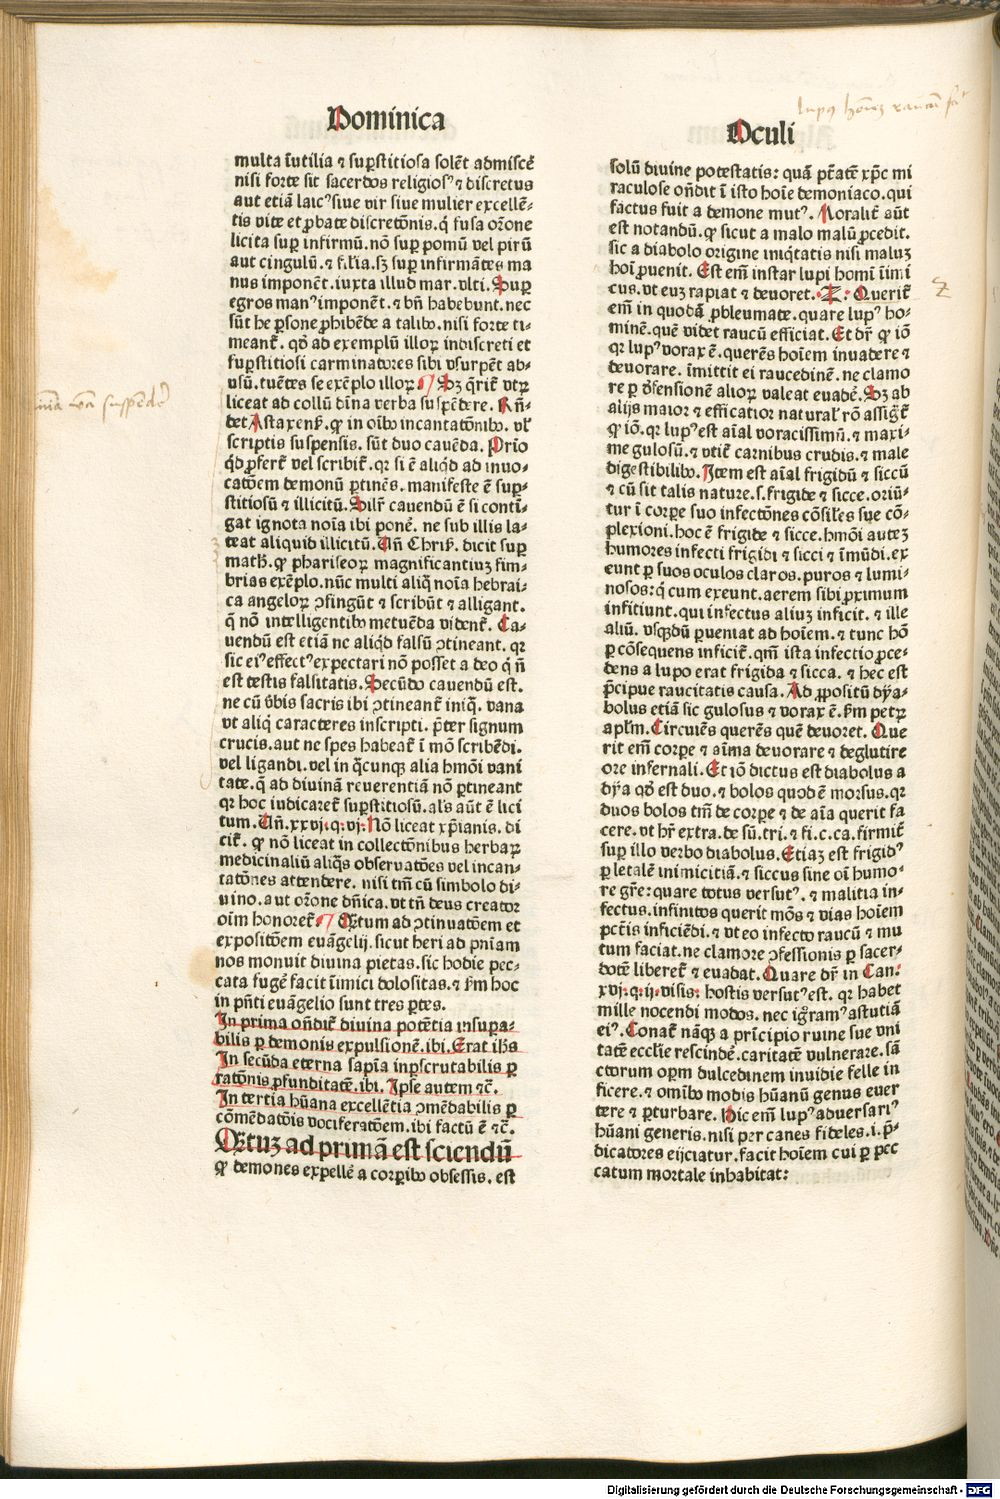 Dominica
multa īutilia ⁊ suꝑstitiosa solēt admiscē
nisi forte sit sacerdos religiosꝰ ⁊ discretus
aut etiā laicꝰ siue vir siue mulier excellē-
tis vite et ꝓbate discretōnis. q̄ fusa or̄one
licita suꝑ infirmū. nō suꝑ pomū vel pirū
aut cingulū. ⁊ sil̄ia. sꝫ suꝑ infirmātes ma
nus imponēt. iuxta illud mar. vlti. Suꝑ
egros manꝰ imponēt. ⁊ bn̄ habebunt. nec
sūt he ꝑsone ꝓhibēde a talibꝰ. nisi forte ti-
meant̄. qd̄ ad exemplū illoꝝ indiscreti et
suꝑstitiosi carminatores sibi vsurpēt ab-
usū. tuētes se exēplo illoꝝ. Sꝫ q̄rit̄ vtꝝ
liceat ad collū dīna verba suspēdere. Rn̄-
det Astaxenꝰ. ꝙ in oībꝰ incantatōnibꝰ. vl̄
scriptis suspensis. sūt duo cauēda. Prīo
qd̄ ꝓfert̄ vel scribit̄. qꝛ si ē aliqd̄ ad inuo-
catōem demonū ꝑtinēs. manifeste ē suꝑ-
stitiosū ⁊ illicitū. Silr̄ cauendū ē si contī-
gat ignota noīa ibi ponē. ne sub illis la-
teat aliquid illicitū. Un̄ Chriſ. dicit suꝑ
math. ꝙ phariseoꝝ magnificantiuꝫ fim-
brias exēplo. nūc multi aliq̄ noīa hebrai-
ca angeloꝝ ↄfingūt ⁊ scribūt ⁊ alligant.
q̄ nō intelligentibꝰ metuēda vident̄. Ca-
uendū est etiā ne aliqd̄ falsū ↄtineant. qꝛ
sic eiꝰ effectꝰ expectari nō posset a deo q̄ nō
est testis falsitatis. Secūdo cauendū est.
ne cū ꝟbis sacris ibi ↄtineant̄ iniq̄. vana
vt aliq̄ caracteres inscripti. p̄ter signum
crucis. aut ne spes habeat̄ ī mō scribēdi.
vel ligandi. vel in q̄cunqꝫ alia hmōi vani
tate. q̄ ad diuinā reuerentiā nō ꝑtineant
qꝛ hoc iudicaret̄ suꝑstitiosū. als̄ aūt ē lici
tum. Un̄. xxvj. q. vj. Nō liceat xp̄ianis. di
cit̄. ꝙ nō liceat in collectōnibus herbaꝝ
medicinaliū aliq̄s obseruatōes vel incan-
tatōnes attendere. nisi tm̄ cū simbolo di-
uino. aut or̄one dn̄ica. vt tn̄ deus creator
oīm honoret̄. Qꝫtum ad ↄtinuatōem et
expositōem euāgelij. sicut heri ad pn̄iam
nos monuit diuina pietas. sic hodie pec-
cata fugē facit īimici dolositas. ⁊ ẜm hoc
in pn̄ti euāgelio sunt tres ꝑtes.
In prima on̄dit̄ diuina potētia insupa-
bilis ꝑ demonis expulsionē. ibi. Erat ih̄s
In secūda eterna sapīa inꝑscrutabilis ꝑ
ratōnis ꝓfunditatē. ibi. Ipse autem ⁊c̄.
In tertia hūana excellētia ↄmēdabilis ꝑ
cōmēdatōis vociferatōem. ibi factū ē ⁊c̄.
Qꝫtuꝫ ad primā est sciendū
ꝙ demones expellē a corꝑibꝰ obsessis. est
Oculi
solū diuine potestatis: quā ptātē xp̄c mi
raculose on̄dit ī isto hoīe demoniaco. qui
factus fuit a demone mutꝰ. Moralit̄ aūt
est notandū. ꝙ sicut a malo malū ꝓcedit.
sic a diabolo origine iniq̄tatis nisi maluꝫ
hoī ꝓuenit. Est em̄ instar lupi homī īimi
cus. vt euꝫ rapiat ⁊ deuoret. Z. Querit̄
em̄ in quodā ꝓbleumate. quare lupꝰ ho-
minē. quē videt raucū efficiat. Et dr̄ ꝙ iō
qꝛ lupꝰ vorax ē. querēs hoīem inuadere ⁊
deuorare. īmittit ei raucedinē. ne clamo
re ꝑ ꝺfensionē alioꝝ valeat euadē. Sꝫ ab
alijs maior ⁊ efficatior natural̄ rō assigt̄
ꝙ iō. qꝛ lupꝰ est aīal voracissimū. ⁊ maxi-
me gulosū. ⁊ vtit̄ carnibus crudis. ⁊ male
digestibilibꝰ. Item est aīal frigidū ⁊ siccū
⁊ cū sit talis nature. s. frigide ⁊ sicce. oriū-
tur ī corꝑe suo infectōnes cōsil̄es sue cō-
plexioni. hoc ē frigide ⁊ sicce. hmōi auteꝫ
humores infecti frigidi ⁊ sicci ⁊ īmūdi. ex
eunt ꝑ suos oculos claros. puros ⁊ lumi-
nosos: q̄ cum exeunt. aerem sibi ꝓximum
infitiunt. qui infectus aliuꝫ inficit. ⁊ ille
aliū. vsqꝫdū ꝑueniat ad hoīem. ⁊ tunc hō
ꝑ cōsequens inficit̄. qm̄ ista infectio ꝓce-
dens a lupo erat frigida ⁊ sicca. ⁊ hec est
p̄cipue raucitatis causa. Ad ꝓpositū dya-
bolus etiā sic gulosus ⁊ vorax ē. ẜm petꝝ
apl̄m. Circuiēs querēs quē deuoret. Que
rit em̄ corpꝫ ⁊ aīma deuorare ⁊ deglutire
ore infernali. Et iō dictus est diabolus a
dya qd̄ est duo. ⁊ bolos quod ē morsus. qꝛ
duos bolos tm̄ de corꝑe ⁊ de aīa querit fa
cere. vt hr̄ extra. de sū. tri. ⁊ fi. c. ca. firmit̄
suꝑ illo verbo diabolus. Etiaꝫ est frigidꝰ
ꝑ letalē inimicitiā. ⁊ siccus sine oī humo-
re gr̄e: quare totus versutꝰ. ⁊ malitia in-
fectus. infinitos querit mōs ⁊ vias hoīem
pctīs inficiēdi. ⁊ vt eo infecto raucū ⁊ mu
tum faciat. ne clamore ↄfessionis ꝑ sacer-
dotē liberet̄ ⁊ euadat. Quare dr̄ in Can.
xvj. q. ij. visis: hostis versutꝰ est. qꝛ habet
mille nocendi modos. nec igr̄amꝰ astutiā
eiꝰ. Conat̄ nāqꝫ a prīcipio ruine sue vni
tatē eccl̄ie rescindē. caritatē vulnerare. sā
ctorum opm̄ dulcedinem inuidie felle in
ficere. ⁊ omībꝰ modis hūanū genus euer
tere ⁊ ꝑturbare. Hic em̄ lupꝰ aduersariꝰ
hūani generis. nisi per canes fideles. i. p̄-
dicatores eijciatur. facit hoīem cui ꝑ pec
catum mortale inhabitat:
Digitalisierung gefördert durch die Deutsche Forschungsgemeinschaft - DFG